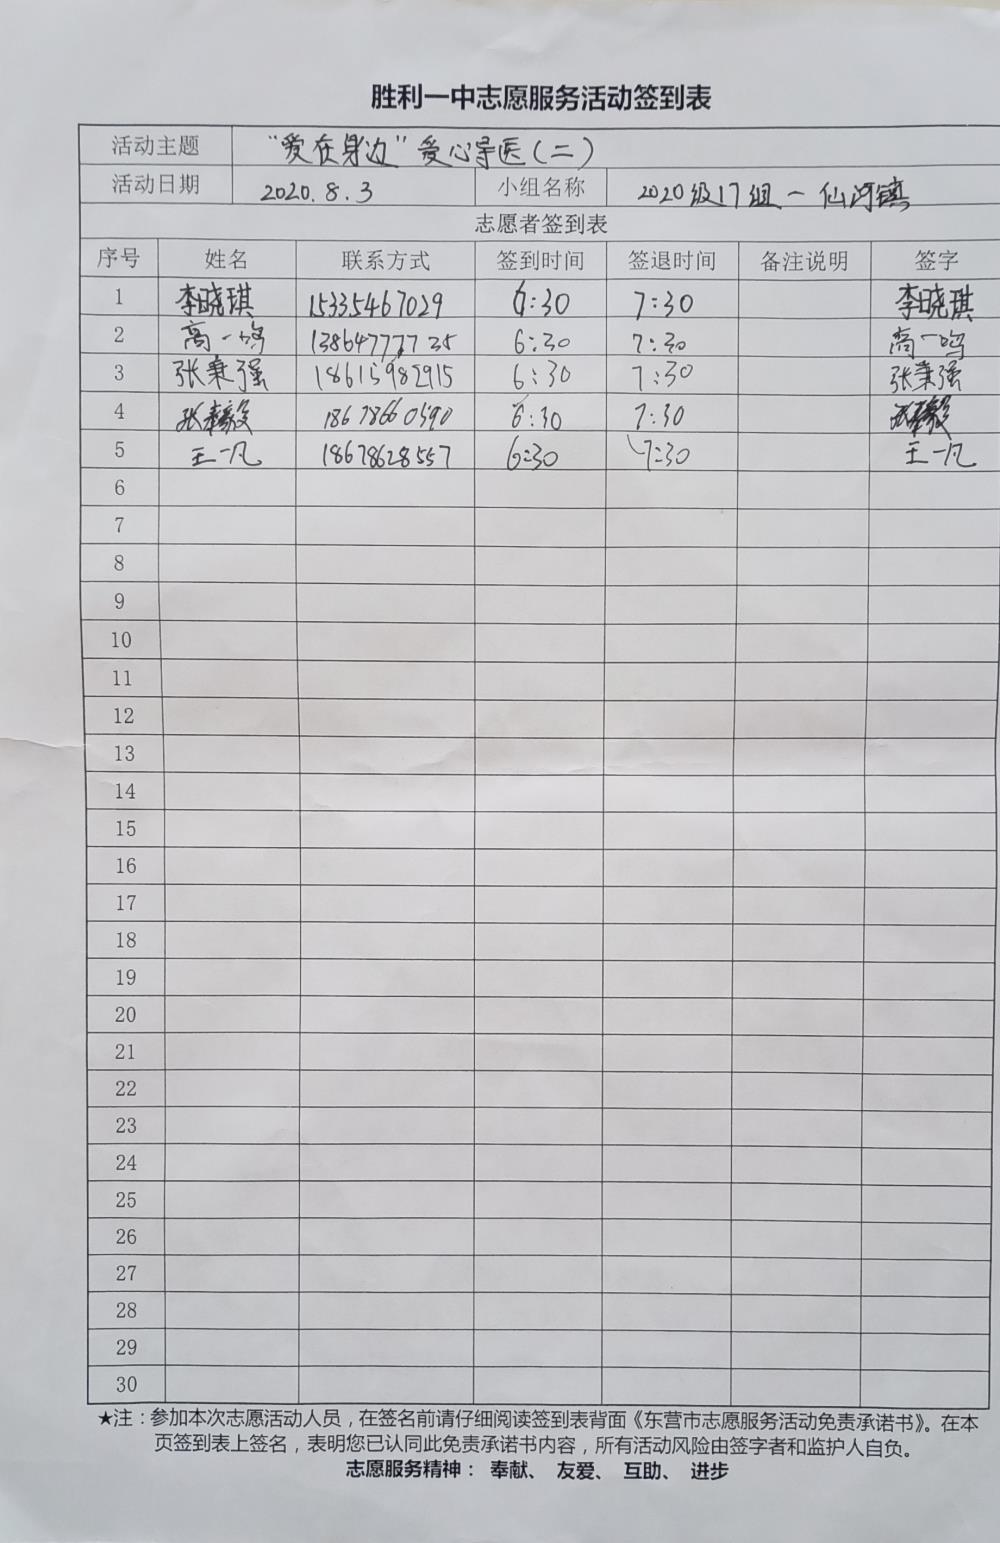 胜利一中志愿服务活动签到表
活动主题 “爱在身边”爱心导医(二)
活动日期 2020.8.3 小组名称 2020级17组一仙河镇
志愿者签到表
序号 姓名 联系方式 签到时间 签退时间 备注说明 签字
1 李晓琪 15335467029 6:30 7:30 李晓琪
2 高一鸣 13864777735 6:30 7:30 高一鸣
3 张秉强 18615982915 6:30 7:30 张秉强
4 18678660590 6:30 7:30
5 王一凡 18678628557 6:30 7:30 王一凡
6
7
8
9
10
11
12
13
14
15
16
17
18
19
20
21
22
23
24
25
26
27
28
29
30
★注：参加本次志愿活动人员，在签名前请仔细阅读签到表背面《东营市志愿服务活动免责承诺书》。在本
页签到表上签名，表明您已认同此免责承诺书内容，所有活动风险由签字者和监护人自负。
志愿服务精神： 奉献、 友爱、 互助、 进步